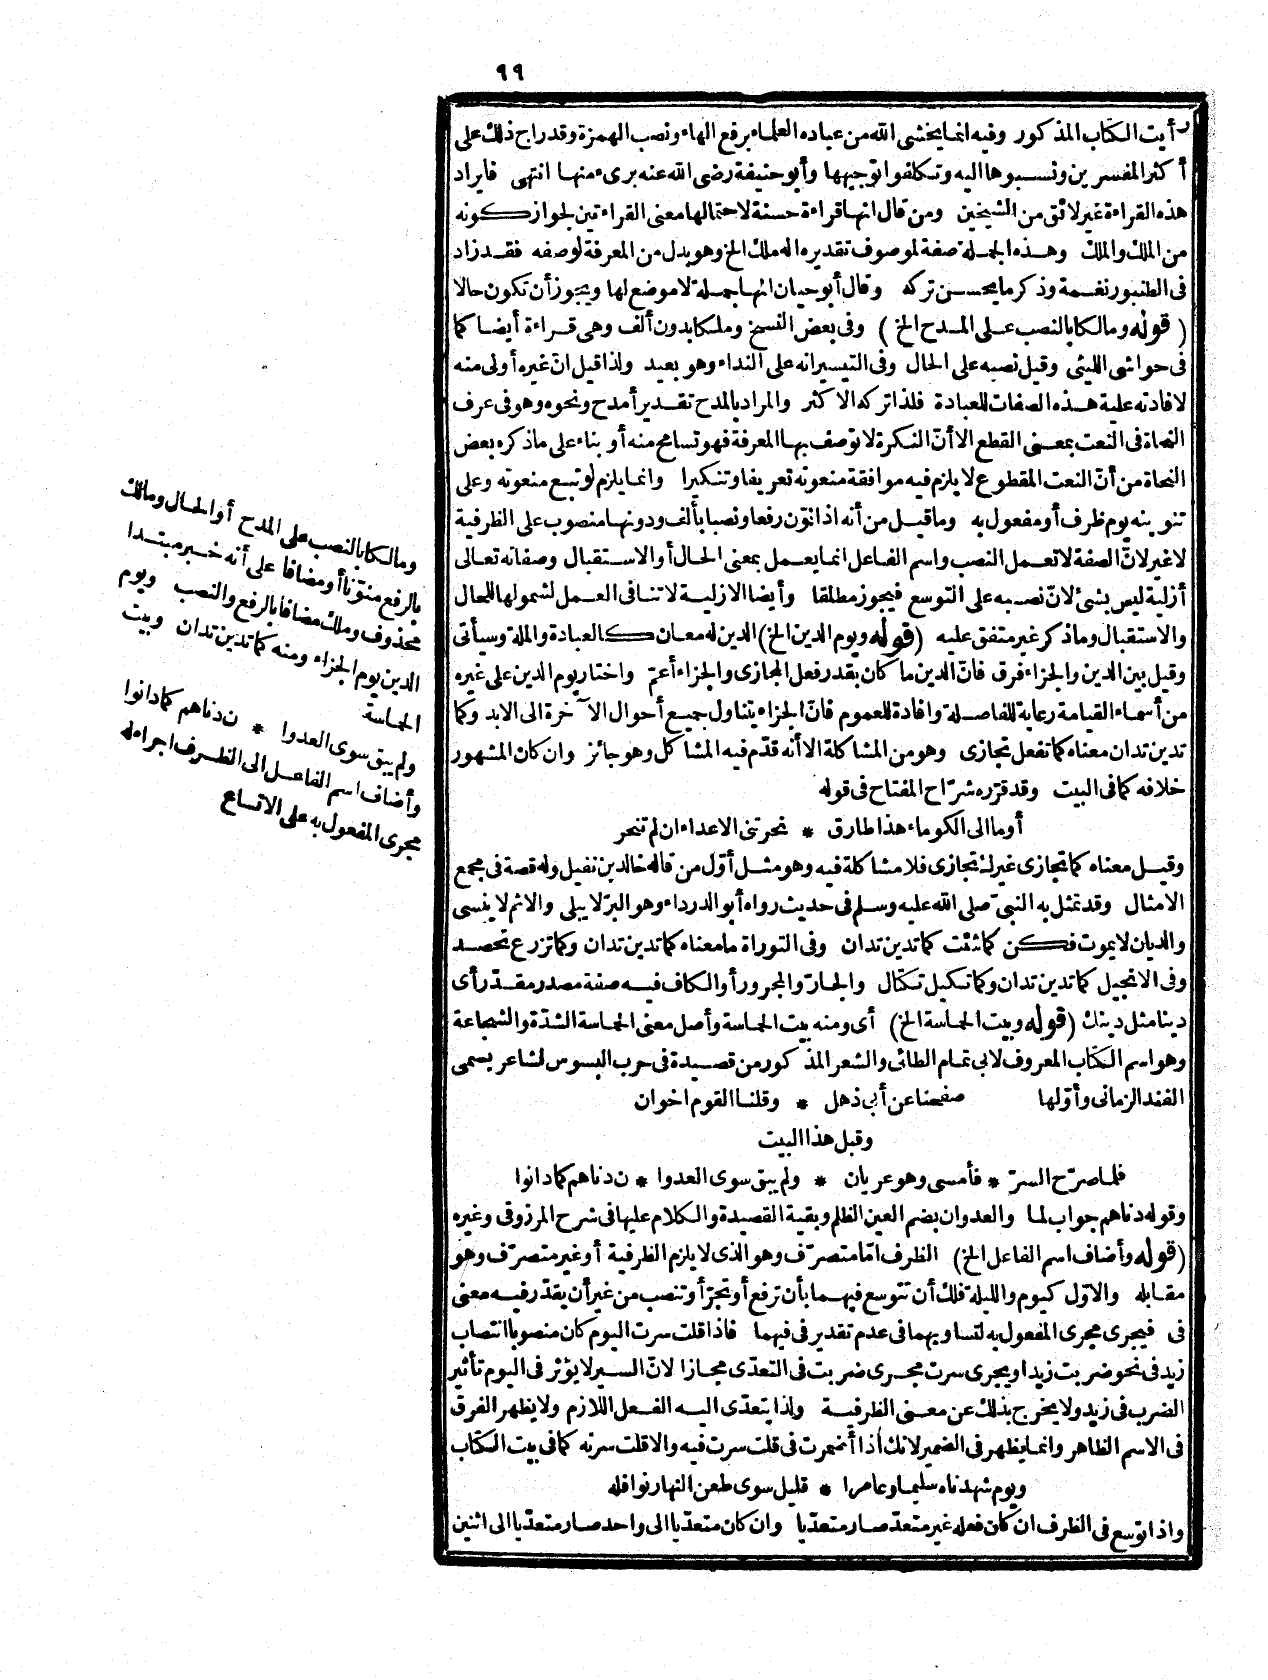 ٩٩
رأيت الكتاب المذكور وفيه انما يخشى الله من عباده العلماء برفع الهاء ونصب الهمزة وقد راج ذلك على
أكثر المفسرين ونسبوها اليه وتكلفوا توجيهها وأبو حنيفة رضى الله عنه برىء منها انتهى فايراد
هذه القراءة غير لائق من الشيخين ومن قال انها قراءة حسنة لاحتمالها معنى القراءتين لجواز كونه
من الملك والملك وهذه الجملة صفة لموصوف تقديره اله ملك الخ وهو بدل من المعرفة لوصفه فقد زاد
فى الطنبور نغمة وذكر ما يحسن تركه وقال أبو حيان انها جملة لا موضع لها ويجوز أن تكون حالا
(قوله ومالكا بالنصب على المدح الخ) وفى بعض النسخ وملكا بدون ألف وهى قراءة أيضا كما
فى حواشى الليثى وقيل نصبه على الحال وفى التيسير انه على النداء وهو بعيد ولذا قيل انّ غيره أولى منه
لافادته علية هذه الصفات للعبادة فلذا تركه الاكثر والمراد بالمدح تقدير أمدح ونحوه وهو فى عرف
النحاة فى النعت بمعنى القطع الا أنّ النكرة لا توصف بها المعرفة فهو تسامح منه أو بناء على ما ذكره بعض
النحاة من أنّ النعت المقطوع لا يلزم فيه موافقة منعوته تعريفا وتنكيرا وانما يلزم لو تبع منعوته وعلى
تنوينه يوم ظرف أو مفعول به وما قيل من أنه اذا نوّن رفعا ونصبا بألف ودونها منصوب على الظرفية
لا غير لانّ الصفة لا تعمل النصب واسم الفاعل انما يعمل بمعنى الحال أو الاستقبال وصفاته تعالى
أزلية ليس بشئ لانّ نصبه على التوسع فيجوز مطلقا وأيضا الازلية لا تنافى العمل لشمولها للحال
والاستقبال وما ذكر غير متفق عليه (قوله ويوم الدين الخ) الدين له معان كالعبادة والملة وسيأتى
وقيل بين الدين والجزاء فرق فانّ الدين ما كان بقدر فعل المجازى والجزاء أعمّ واختار يوم الدين على غيره
من أسماء القيامة رعاية للفاصلة وافادة للعموم فانّ الجزاء يتناول جميع أحوال الآخرة الى الابد وكما
تدين تدان معناه كما تفعل تجازى وهو من المشاكلة الا أنه قدّم فيه المشاكل وهو جائز وان كان المشهور
خلافه كما فى البيت وقد قرّره شرّاح المفتاح فى قوله
أوما الى الكوماء هذا طارق * نحرتنى الاعداء ان لم تنحر
وقيل معناه كما تجازى غيرك تجازى فلا مشاكلة فيه وهو مثل أوّل من قاله خالد بن نفيل وله قصة فى مجمع
الامثال وقد تمثل به النبىّ صلى الله عليه وسلم فى حديث رواه أبو الدرداء وهو البرّ لا يبلى والاثم لا ينسى
والديان لا يموت فكن كما شئت كما تدين تدان وفى التوراة ما معناه كما تدين تدان وكما تزرع تحصد
وفى الانجيل كما تدين تدان وكما تكيل تكتال والجارّ والمجرور أو الكاف فيه صفة مصدر مقدّر أى
دينا مثل دينك (قوله وبيت الحماسة الخ) أى ومنه بيت الحماسة وأصل معنى الحماسة الشدّة والشجاعة
وهو اسم الكتاب المعروف لابى تمام الطائى والشعر المذكور من قصيدة فى حرب البسوس لشاعر يسمى
الفند الزمانى وأوّلها صفحنا عن أبى ذهل * وقلنا القوم اخوان
وقبل هذا البيت
فلما صرّح السرّ * فأمسى وهو عريان * ولم يبق سوى العدوا * ن دناهم كما دانوا
وقوله دناهم جواب لما والعدوان بضم العين الظلم وبقية القصيدة والكلام عليها فى شرح المرزوقى وغيره
(قوله وأضاف اسم الفاعل الخ) الظرف امّا متصرّف وهو الذى لا يلزم الظرفية أو غير متصرّف وهو
مقابله والاوّل كيوم والليلة فلك أن تتوسع فيهما بأن ترفع أو تجرّ أو تنصب من غير أن يقدّر فيه معنى
فى فيجرى مجرى المفعول به لتساويهما فى عدم تقدير فى فيهما فاذا قلت سرت اليوم كان منصوبا انتصاب
زيد فى نحو ضربت زيدا ويجرى سرت مجرى ضربت فى التعدّى مجازا لانّ السير لا يؤثر فى اليوم تأثير
الضرب فى زيد ولا يخرج بذلك عن معنى الظرفية ولذا يتعدّى اليه الفعل اللازم ولا يظهر الفرق
فى الاسم الظاهر وانما يظهر فى الضمير لانك اذا أضمرت فى قلت سرت فيه والا قلت سرته كما فى بيت الكتاب
ويوم شهدناه سليما وعامرا * قليل سوى طعن النهار نوافله
واذا توسع فى الظرف ان كان فعله غير متعدّ صار متعدّيا وان كان متعدّيا الى واحد صار متعدّيا الى اثنين
ومالكا بالنصب على المدح أو الحال ومالك
بالرفع منوّنا أو مضافا على أنه خبر مبتدا
محذوف وملك مضافا بالرفع والنصب ويوم
الدين يوم الجزاء ومنه كما تدين تدان وبيت
الحماسة
ولم يبق سوى العدوا * ن دناهم كما دانوا
وأضاف اسم الفاعل الى الظرف اجراء له
مجرى المفعول به على الاتساع